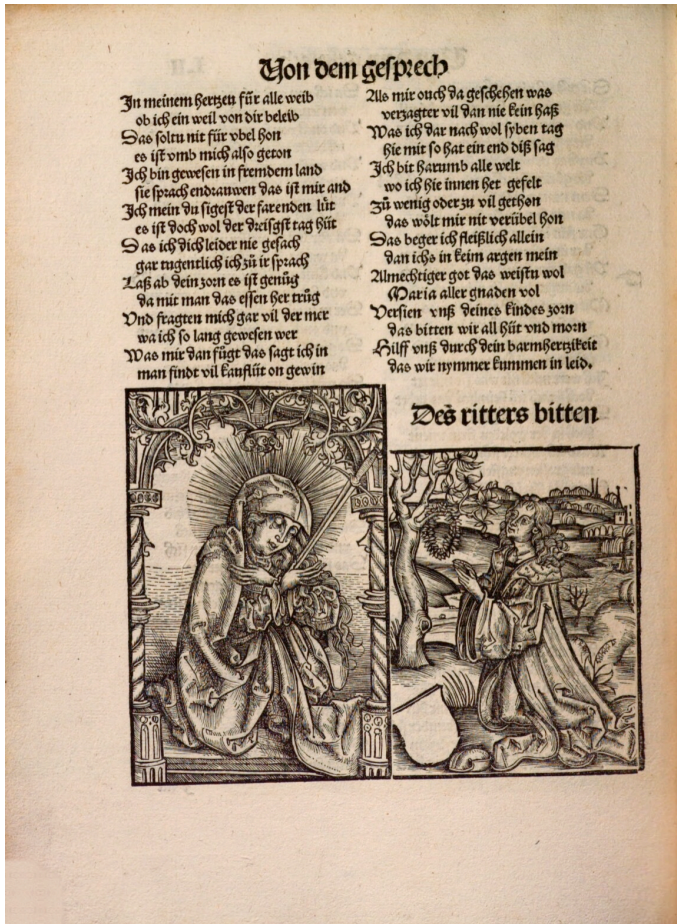 Von dem gesprech
In meinem hertzen für alle weib
ob ich ein weil von dir beleib
Das soltu nit für vbel hon
es ist vmb mich also geton
Ich bin gewesen in fremdem land
sie sprach endrauwen das ist mir and
Ich mein du sigest der farenden lüt
es ist doch wol der dreisgst tag hüt
Das ich dich leider nie gesach
gar tugentlich ich zů ir sprach
Laß ab dein zorn es ist genůg
da mit man das essen her trůg
Vnd fragten mich gar vil der mer
wa ich so lang gewesen wer
Was mir dan fůgt das sagt ich in
man findt vil kauflüt on gewin
Als mir ouch da geschehen was
verzagter vil dan nie kein haß
Was ich dar nach wol syben tag
hie mit so hat ein end diß sag
Ich bit harumb alle welt
wo ich hie innen het gefelt
Zů wenig oder zu vil gethon
das wölt mir nit verübel hon
Das beger ich fleißlich allein
dan ichs in keim argen mein
Almechtiger got das weistu wol
Maria aller gnaden vol
Versien vnß deines kindes zorn
das bitten wir all hüt vnd morn
Hilff vnß durch dein barmhertzikeit
das wir nymmer kummen in leid.
Des ritters bitten